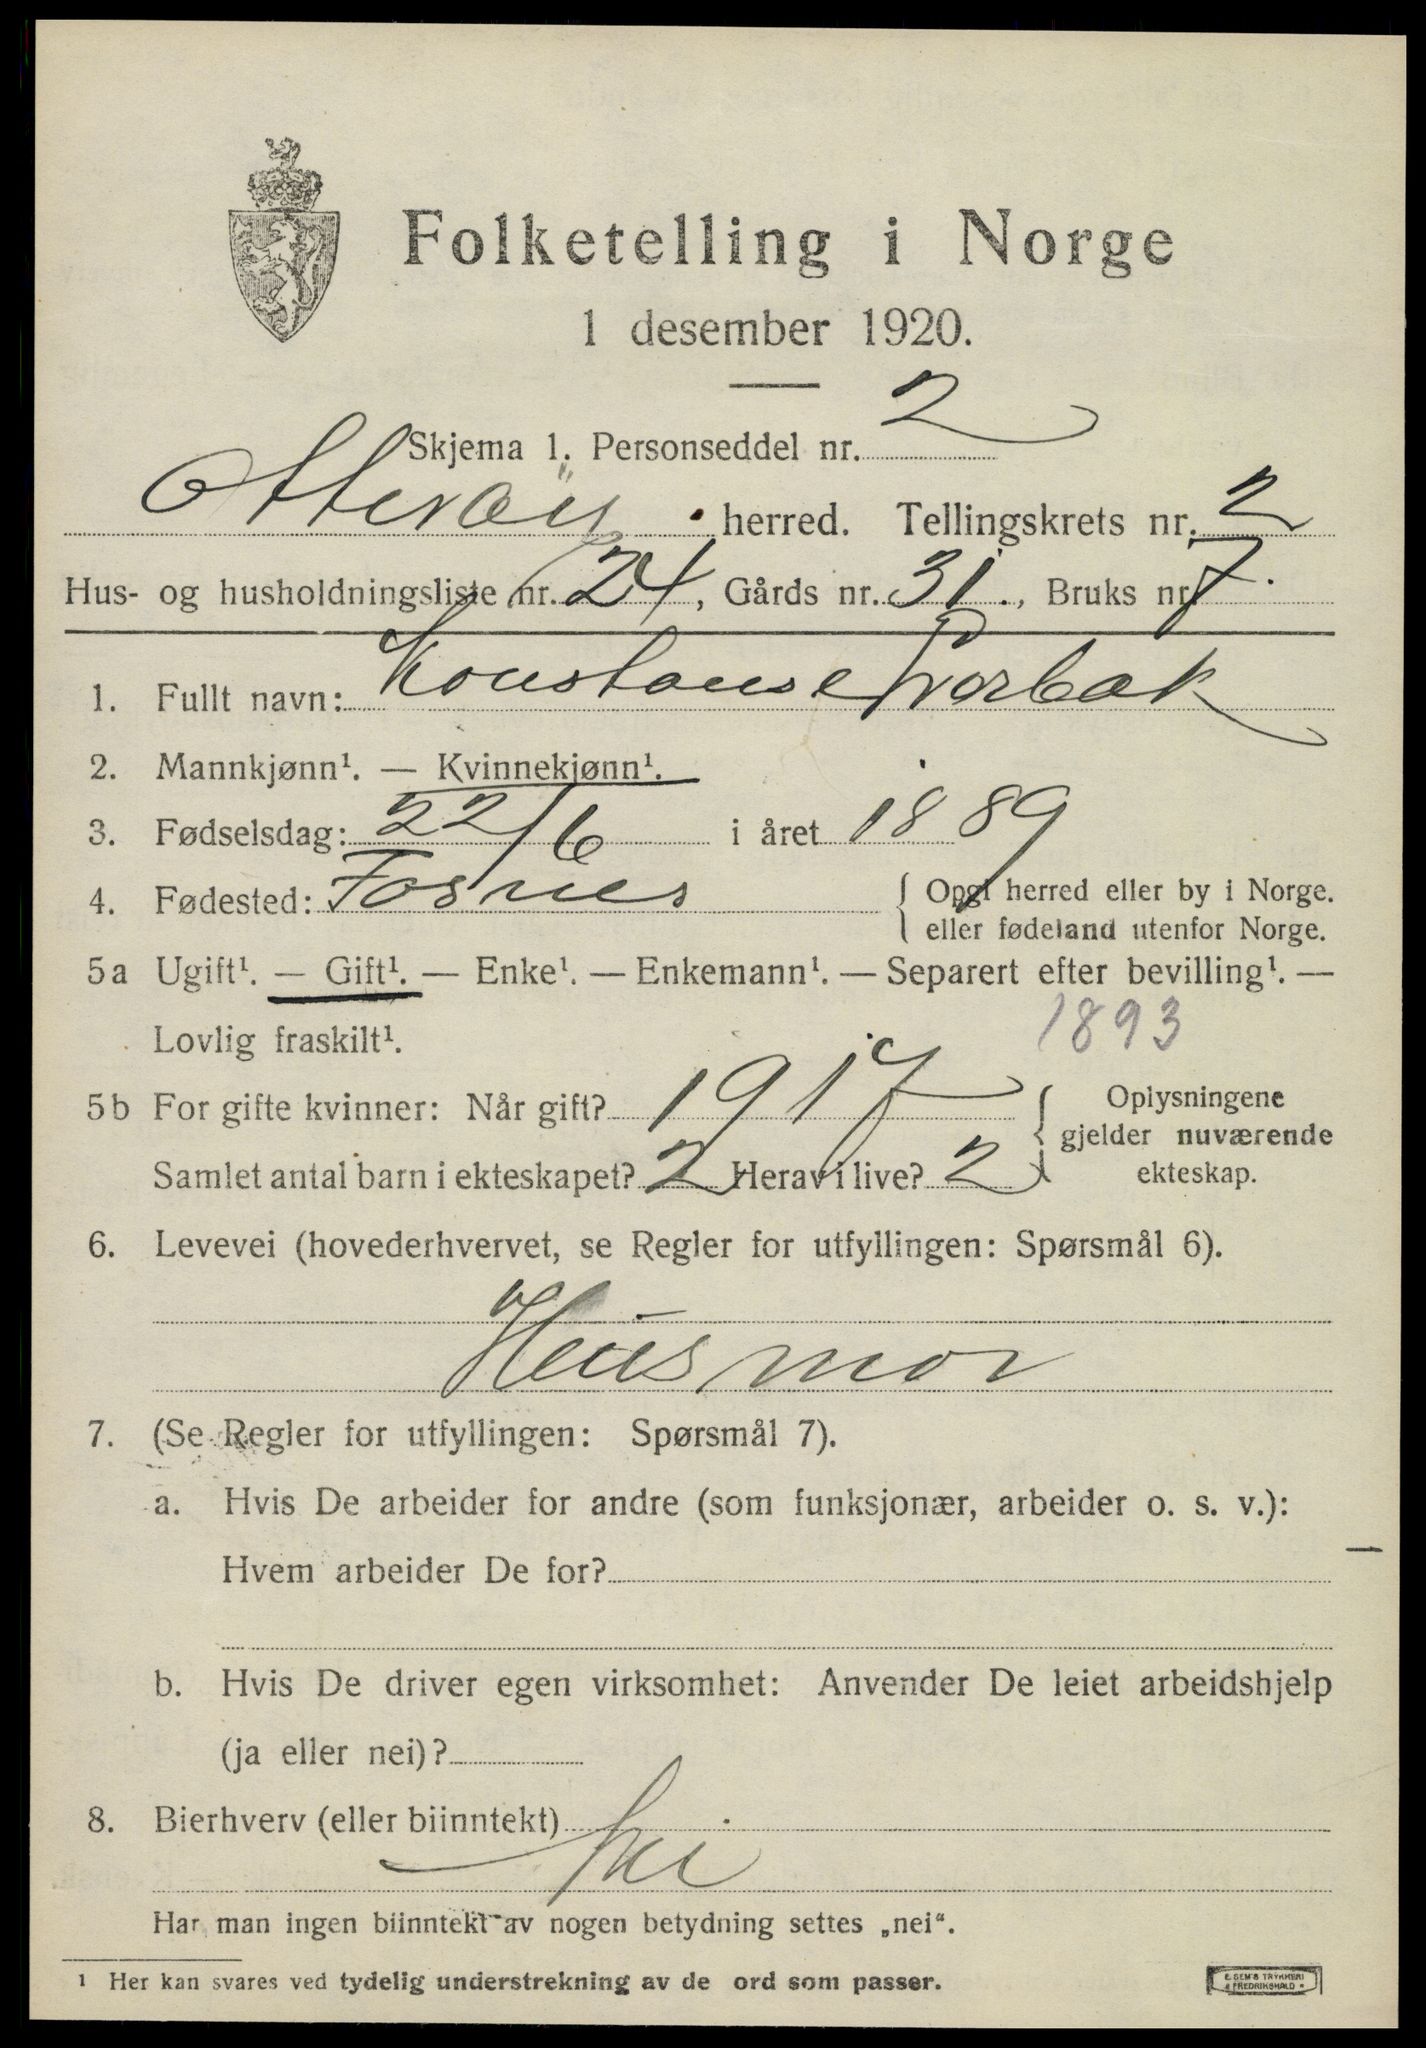 Folketelling i Norge
1 desember 1920.
Skjema 1. Personseddel nr. 2
Otterøy herred. Tellingskrets nr. 2
Hus- og husholdningsliste nr. 24, Gårds nr. 31., Bruks nr. 7.
1. Fullt navn: Konstanse
2. Mannkjønn¹. — Kvinnekjønn¹.
3. Fødselsdag: 22/6 i året 1889
4. Fødested: Fosnes { Opgi herred eller by i Norge.
{ eller fødeland utenfor Norge.
5a Ugift¹. — Gift¹. — Enke¹. — Enkemann¹. — Separert efter bevilling¹. —
Lovlig fraskilt¹. 1893
5b For gifte kvinner: Når gift? 1917 { Oplysningene
gjelder nuværende
Samlet antal barn i ekteskapet? 2 Herav i live? 2 ekteskap.
6. Levevei (hovederhvervet, se Regler for utfyllingen: Spørsmål 6).
Husmor
7. (Se Regler for utfyllingen: Spørsmål 7).
a. Hvis De arbeider for andre (som funksjonær, arbeider o. s. v.):
Hvem arbeider De for? —
b. Hvis De driver egen virksomhet: Anvender De leiet arbeidshjelp
(ja eller nei)?
8. Bierhverv (eller biinntekt)
nei
Har man ingen biinntekt av nogen betydning settes „nei“.
¹ Her kan svares ved tydelig understrekning av de ord som passer.
E. SEM'S TRYKKERI
FREDRIKSHALD